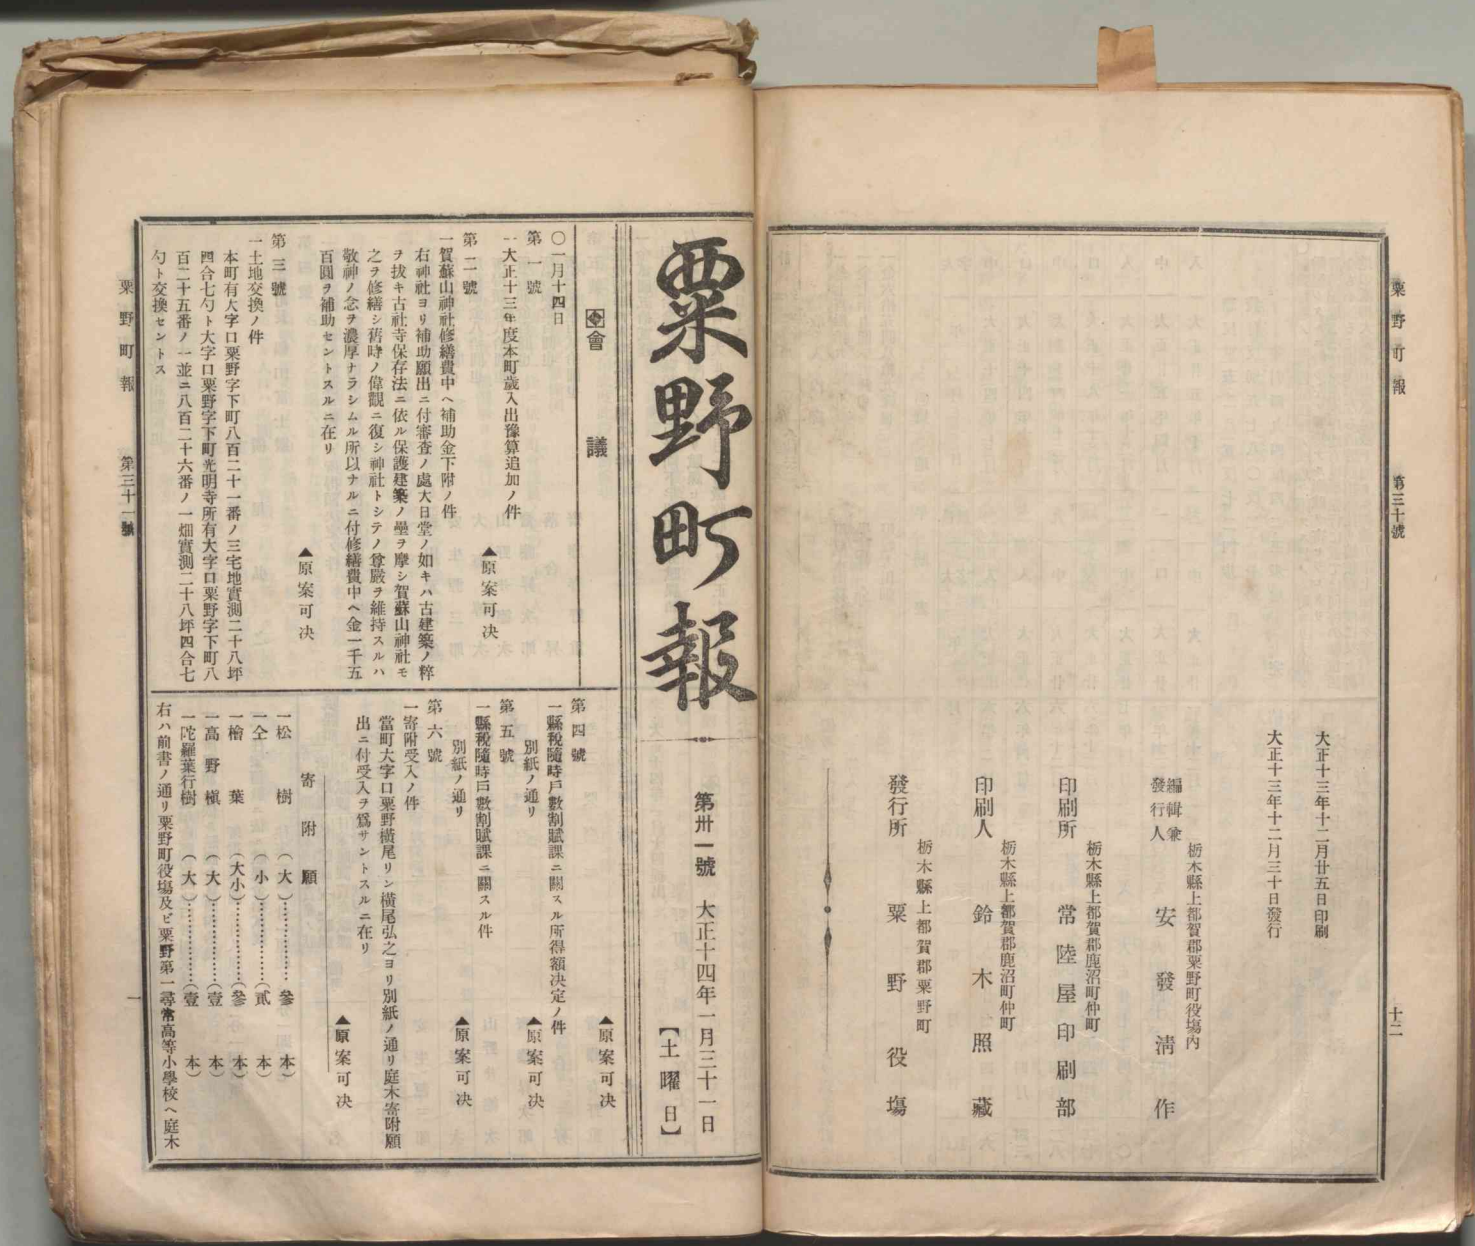 粟野町報
第三十號
十二
大正十三年十二月廿五日印刷
大正十三年十二月三十日發行
栃木縣上都賀郡粟野町役塲內
編輯兼
發行人
安發十淸作
栃木縣上都賀郡鹿沼町仲町
印刷所
常陸屋印刷部
栃木縣上都賀郡鹿沼町仲町
印刷人
鈴木照藏
栃木縣上都賀郡粟野町
發行所
粟野役塲
粟野町報
第卅一號
大正十四年一月三十一日
【土曜日】
會議
〇一月十四日
第一號
一大正十三年度本町歲入出豫算追加ノ件
▲原案可决
第二號
一賀蘇山神社修繕費中ヘ補助金下附ノ件
右神社ヨリ補助願出ニ付審査ノ處大日堂ノ如キハ古建築ノ粹
ヲ拔キ古社寺保存法ニ依ル保護建築ノ壘ヲ摩シ賀蘇山神社モ
之ヲ修繕シ舊時ノ偉觀ニ復シ神社トシテノ尊嚴ヲ維持スルハ
敬神ノ念ヲ濃厚ナラシムル所以ナルニ付修繕費中ヘ金一千五
百圓ヲ補助セントスルニ在リ
▲原案可决
第三號
一土地交換ノ件
本町有大字口粟野字下町八百二十一番ノ三宅地實測二十八坪
四合七勺ト大字口粟野字下町光明寺所有大字口粟野字下町八
百二十五番ノ一並ニ八百二十六番ノ一畑實測二十八坪四合七
勺ト交換セントス
▲原案可决
第四號
一縣稅隨時戶數割賦課ニ關スル所得額决定ノ件
別紙ノ通リ
▲原案可决
第五號
一縣稅隨時戶數割賦課ニ關スル件
別紙ノ通リ
▲原案可决
第六號
一寄附受入ノ件
當町大字口粟野橫尾リン橫尾弘之ヨリ別紙ノ通リ庭木寄附願
出ニ付受入ヲ爲サントスルニ在リ
▲原案可决
寄附願
一松樹（大）……………（參本）
一仝（小）……………（貳本）
一檜葉（大小）……………（參本）
一高野槇（大）……………（壹本）
一咜羅葉行樹（大）……………（壹本）
右ハ前書ノ通リ粟野町役塲及ビ粟野第一尋常高等小學校ヘ庭木
粟野町報
第三十一號
一